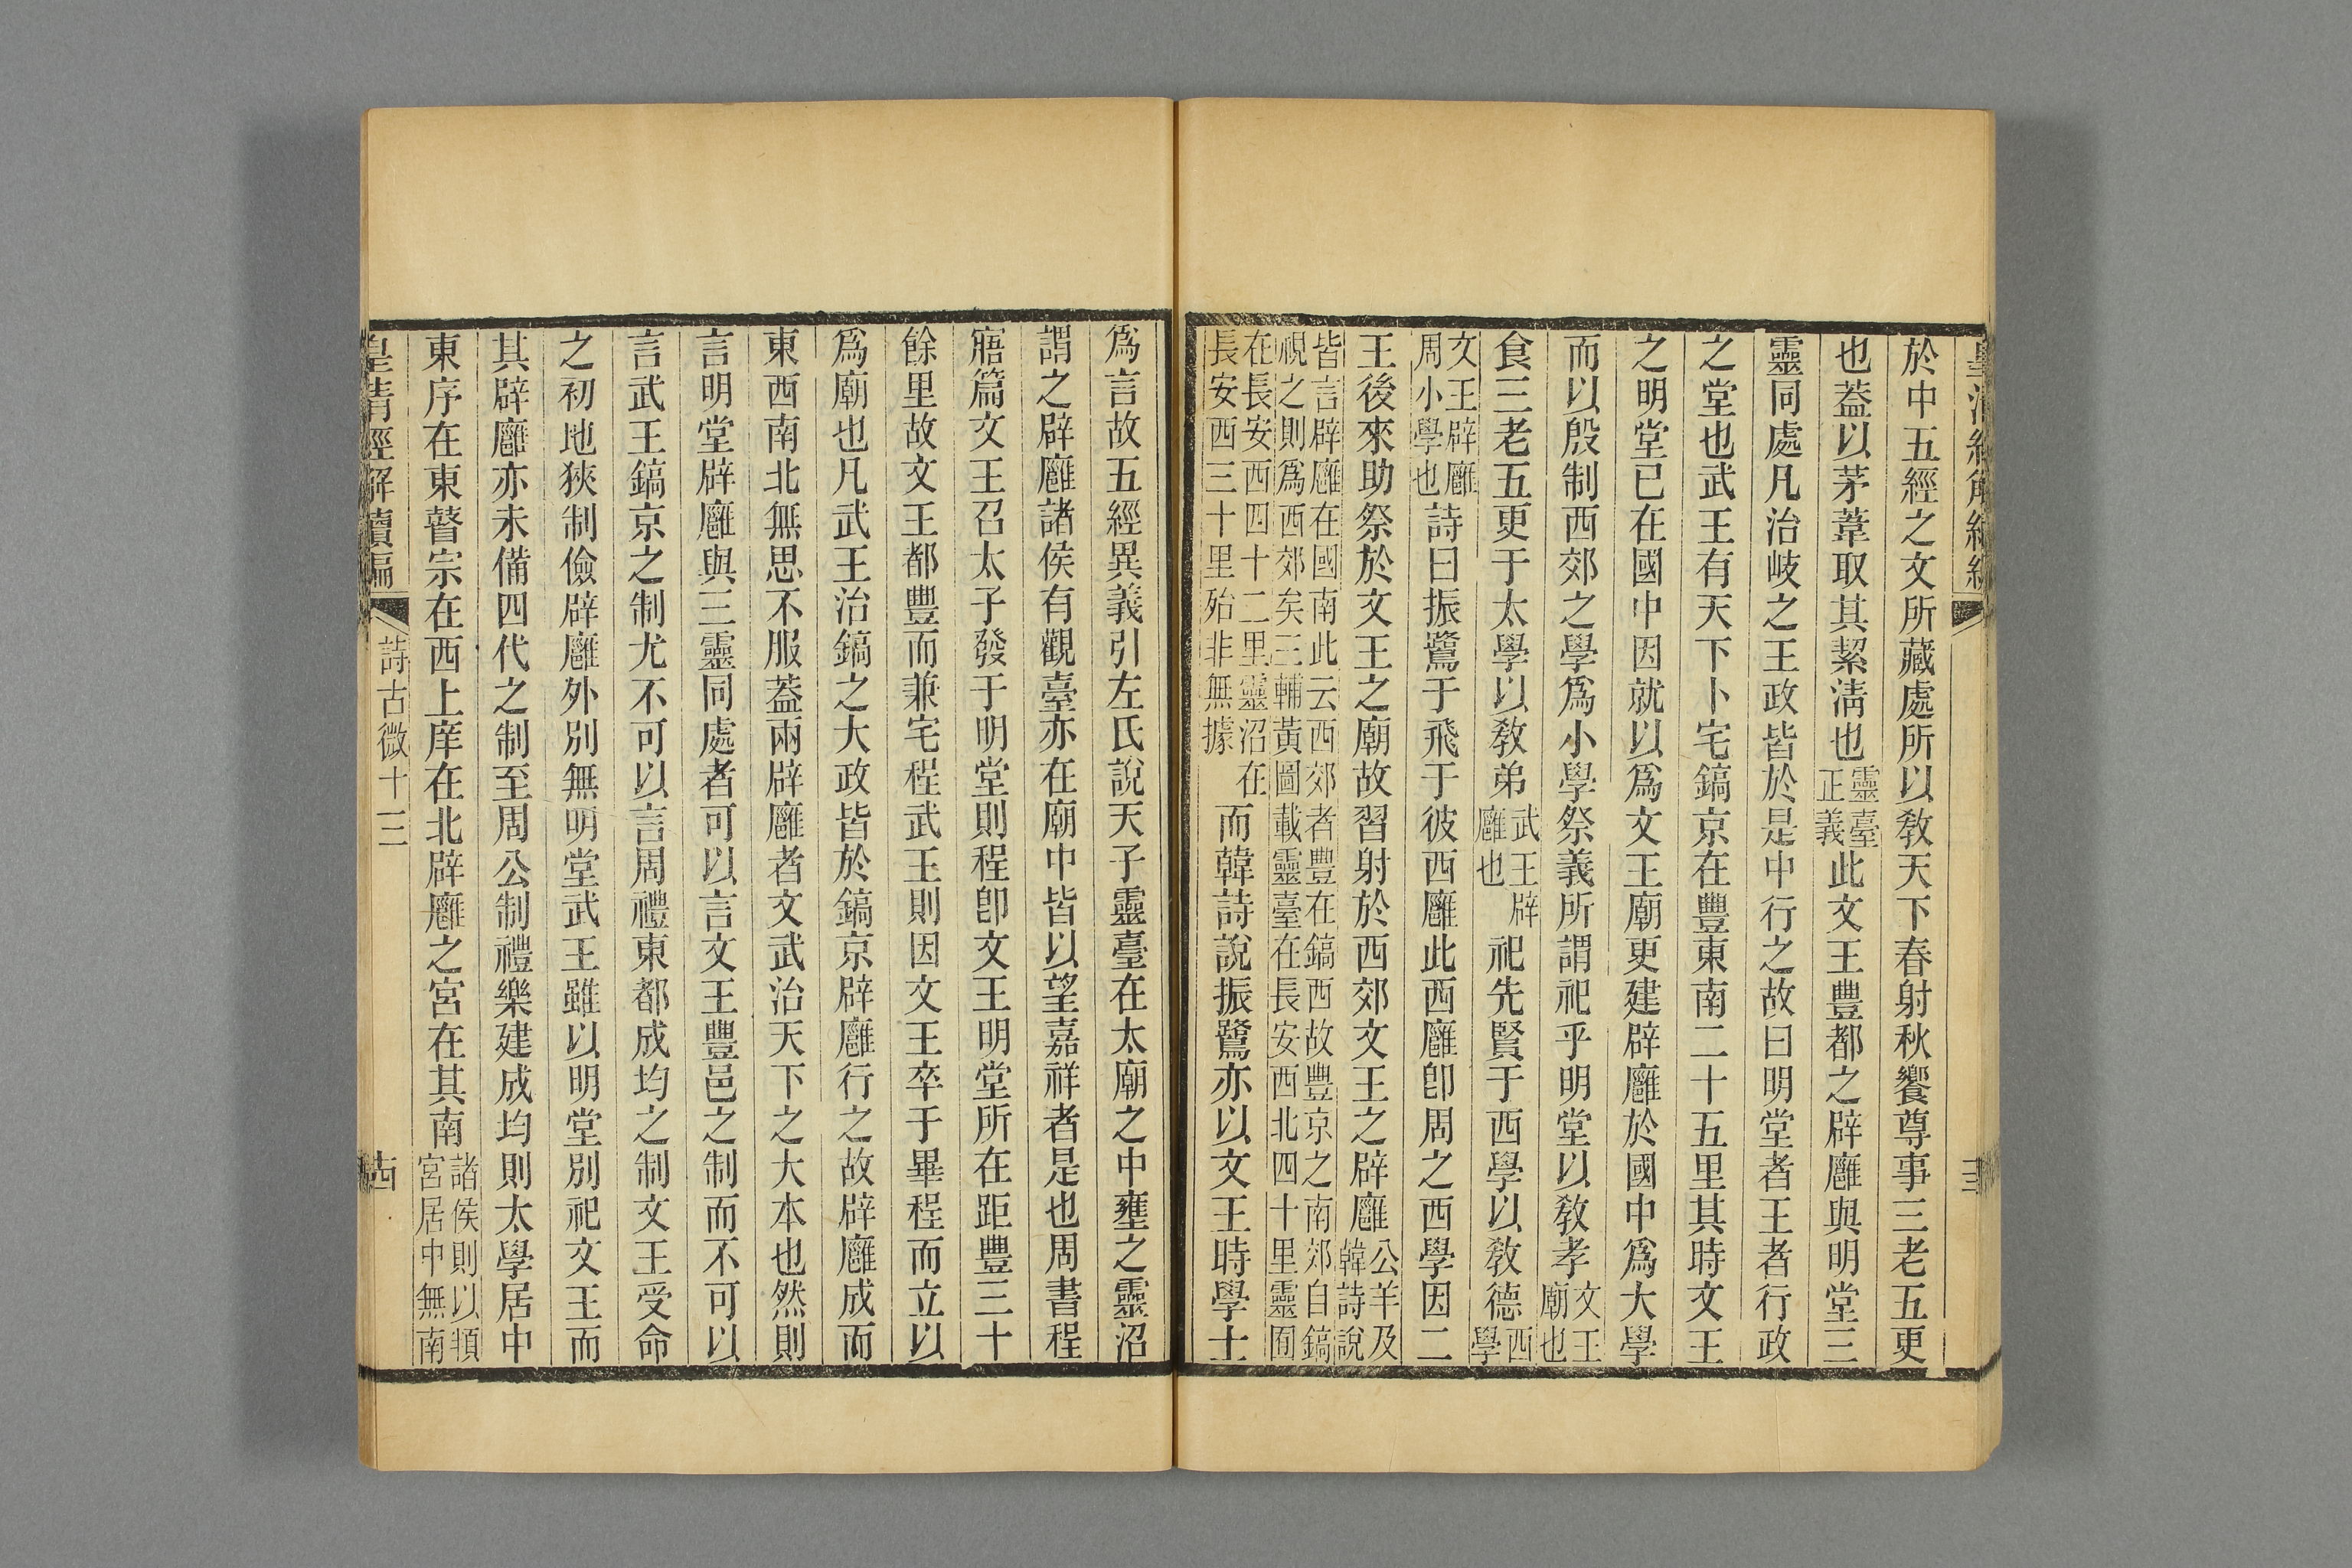 於中五經之文所藏處所以敎天下春射秋饗尊事三老五更
也葢以茅葦取其絜淸也靈臺正義此文王豐都之辟廱與明堂三
靈同處凡治岐之王政皆於是中行之故曰明堂者王者行政
之堂也武王有天下卜宅鎬京在豐東南二十五里其時文王
之明堂已在國中因就以爲文王廟更建辟廱於國中爲大學
而以殷制西郊之學爲小學祭義所謂祀乎明堂以敎孝文王廟也
食三老五更于太學以敎弟武王辟廱也祀先賢于西學以敎德西學
文王辟廱周小學也詩曰振鷺于飛于彼西廱此西廱卽周之西學因二
王後來助祭於文王之廟故習射於西郊文王之辟廱公羊及韓詩說
皆言辟廱在國南此云西郊者豐在鎬西故豐京之南郊自鎬
視之則爲西郊矣三輔黃圖載靈臺在長安西北四十里靈囿
在長安西四十二里靈沼在長安西三十里殆非無據而韓詩說振鷺亦以文王時學士
爲言故五經異義引左氏說天子靈臺在太廟之中壅之靈沼
謂之辟廱諸侯有觀臺亦在廟中皆以望嘉祥者是也周書程
寤篇文王召太子發于明堂則程卽文王明堂所在距豐三十
餘里故文王都豐而兼宅程武王則因文王卒于畢程而立以
爲廟也凡武王治鎬之大政皆於鎬京辟廱行之故辟廱成而
東西南北無思不服葢兩辟廱者文武治天下之大本也然則
言明堂辟廱與三靈同處者可以言文王豐邑之制而不可以
言武王鎬京之制尤不可以言周禮東都成均之制文王受命
之初地狹制儉辟廱外別無明堂武王雖以明堂別祀文王而
其辟廱亦未備四代之制至周公制禮樂建成均則太學居中
東序在東瞽宗在西上庠在北辟廱之宮在其南諸侯則以頖宮居中無南
皇淸經解續編 詩古微十三 古